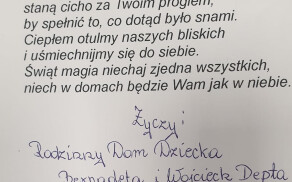 staną cicho za Twoim progiem,
by spełnić to, co dotąd było snami.
Ciepłem otulmy naszych bliskich
i uśmiechnijmy się do siebie.
Świąt magia niechaj zjedna wszystkich,
niech w domach będzie Wam jak w niebie.
Życzy:
Rodzinny Dom Dziecka
Bernadeta i Wojciech Depta